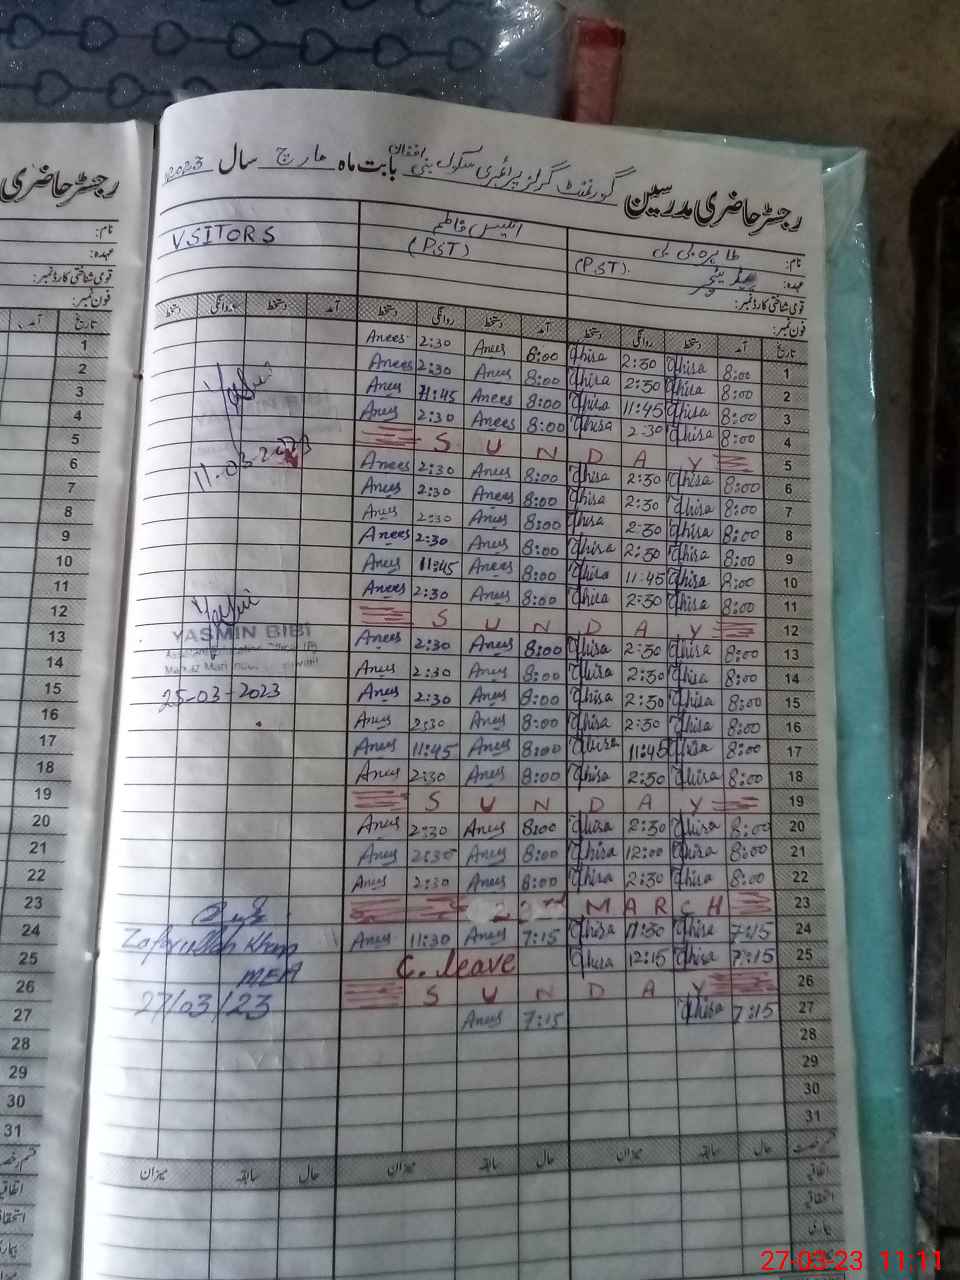 رجسٹر حاضری مدرسین گورنمنٹ گرلز پرائمری سکول بابت ماہ مارچ سال 2023
نام: طاہرہ بی بی انیس فاطمہ VISITORS
عہدہ: (PST) (PST)
قومی شناختی کارڈ نمبر:
فون نمبر:
تاریخ آمد دستخط روانگی دستخط آمد دستخط روانگی دستخط آمد دستخط روانگی دستخط
1 8:00 Thisa 2:30 Thisa 8:00 Anees 2:30 Anees
2 8:00 Thisa 2:30 Thisa 8:00 Anees 2:30 Anees
3 8:00 Thisa 11:45 Thisa 8:00 Anees 11:45 Anees
4 8:00 Thisa 2:30 Thisa 8:00 Anees 2:30 Anees
5 SUNDAY
6 8:00 Thisa 2:30 Thisa 8:00 Anees 2:30 Anees
7 8:00 Thisa 2:30 Thisa 8:00 Anees 2:30 Anees
8 8:00 Thisa 2:30 Thisa 8:00 Anees 2:30 Anees
9 8:00 Thisa 2:30 Thisa 8:00 Anees 2:30 Anees
10 8:00 Thisa 11:45 Thisa 8:00 Anees 11:45 Anees
11 8:00 Thisa 2:30 Thisa 8:00 Anees 2:30 Anees
12 SUNDAY
13 8:00 Thisa 2:30 Thisa 8:00 Anees 2:30 Anees
14 8:00 Thisa 2:30 Thisa 8:00 Anees 2:30 Anees
15 8:00 Thisa 2:30 Thisa 8:00 Anees 2:30 Anees
16 8:00 Thisa 2:30 Thisa 8:00 Anees 2:30 Anees
17 8:00 Thisa 11:45 Thisa 8:00 Anees 11:45 Anees
18 8:00 Thisa 2:30 Thisa 8:00 Anees 2:30 Anees
19 SUNDAY
20 8:00 Thisa 2:30 Thisa 8:00 Anees 2:30 Anees
21 8:00 Thisa 12:00 Thisa 8:00 Anees 2:30 Anees
22 8:00 Thisa 2:30 Thisa 8:00 Anees 2:30 Anees
23 23rd MARCH
24 7:15 Thisa 11:30 Thisa 7:15 Anees 11:30 Anees
25 7:15 Thisa 12:15 Thisa C. leave
26 SUNDAY
27 7:15 Thisa 7:15 Anees
28
29
30
31
حال سابقہ میزان حال سابقہ میزان حال سابقہ میزان
YASMIN BIBI
11-03-2023
YASMIN BIBI
25-03-2023
Zafarullah Khan
MEA
27/03/23
رجسٹر حاضری
نام:
عہدہ:
قومی شناختی کارڈ نمبر:
فون نمبر:
تاریخ آمد
1
2
3
4
5
6
7
8
9
10
11
12
13
14
15
16
17
18
19
20
21
22
23
24
25
26
27
28
29
30
31
27-03-23 11:11